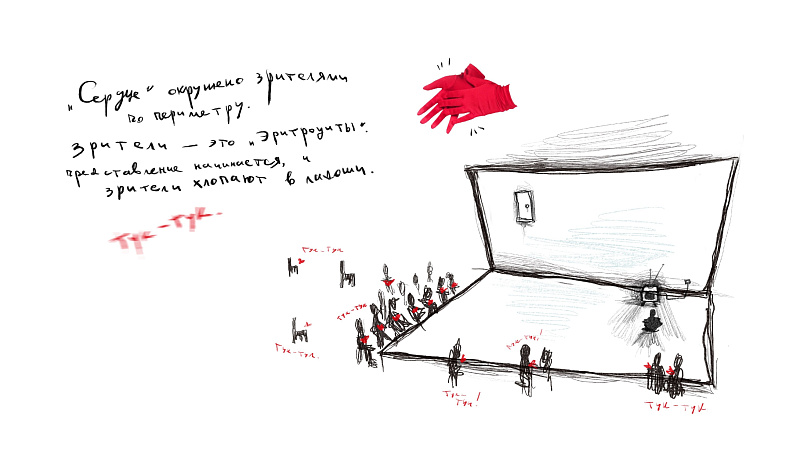 „Сердце" окружено зрителями
по периметру.
зрители — это „Эритроциты".
представление начинается, и
зрители хлопают в ладоши.
тук-тук.
тук-тук
тук-тук
тук-тук.
тук-тук!
тук-
тук!
тук-тук